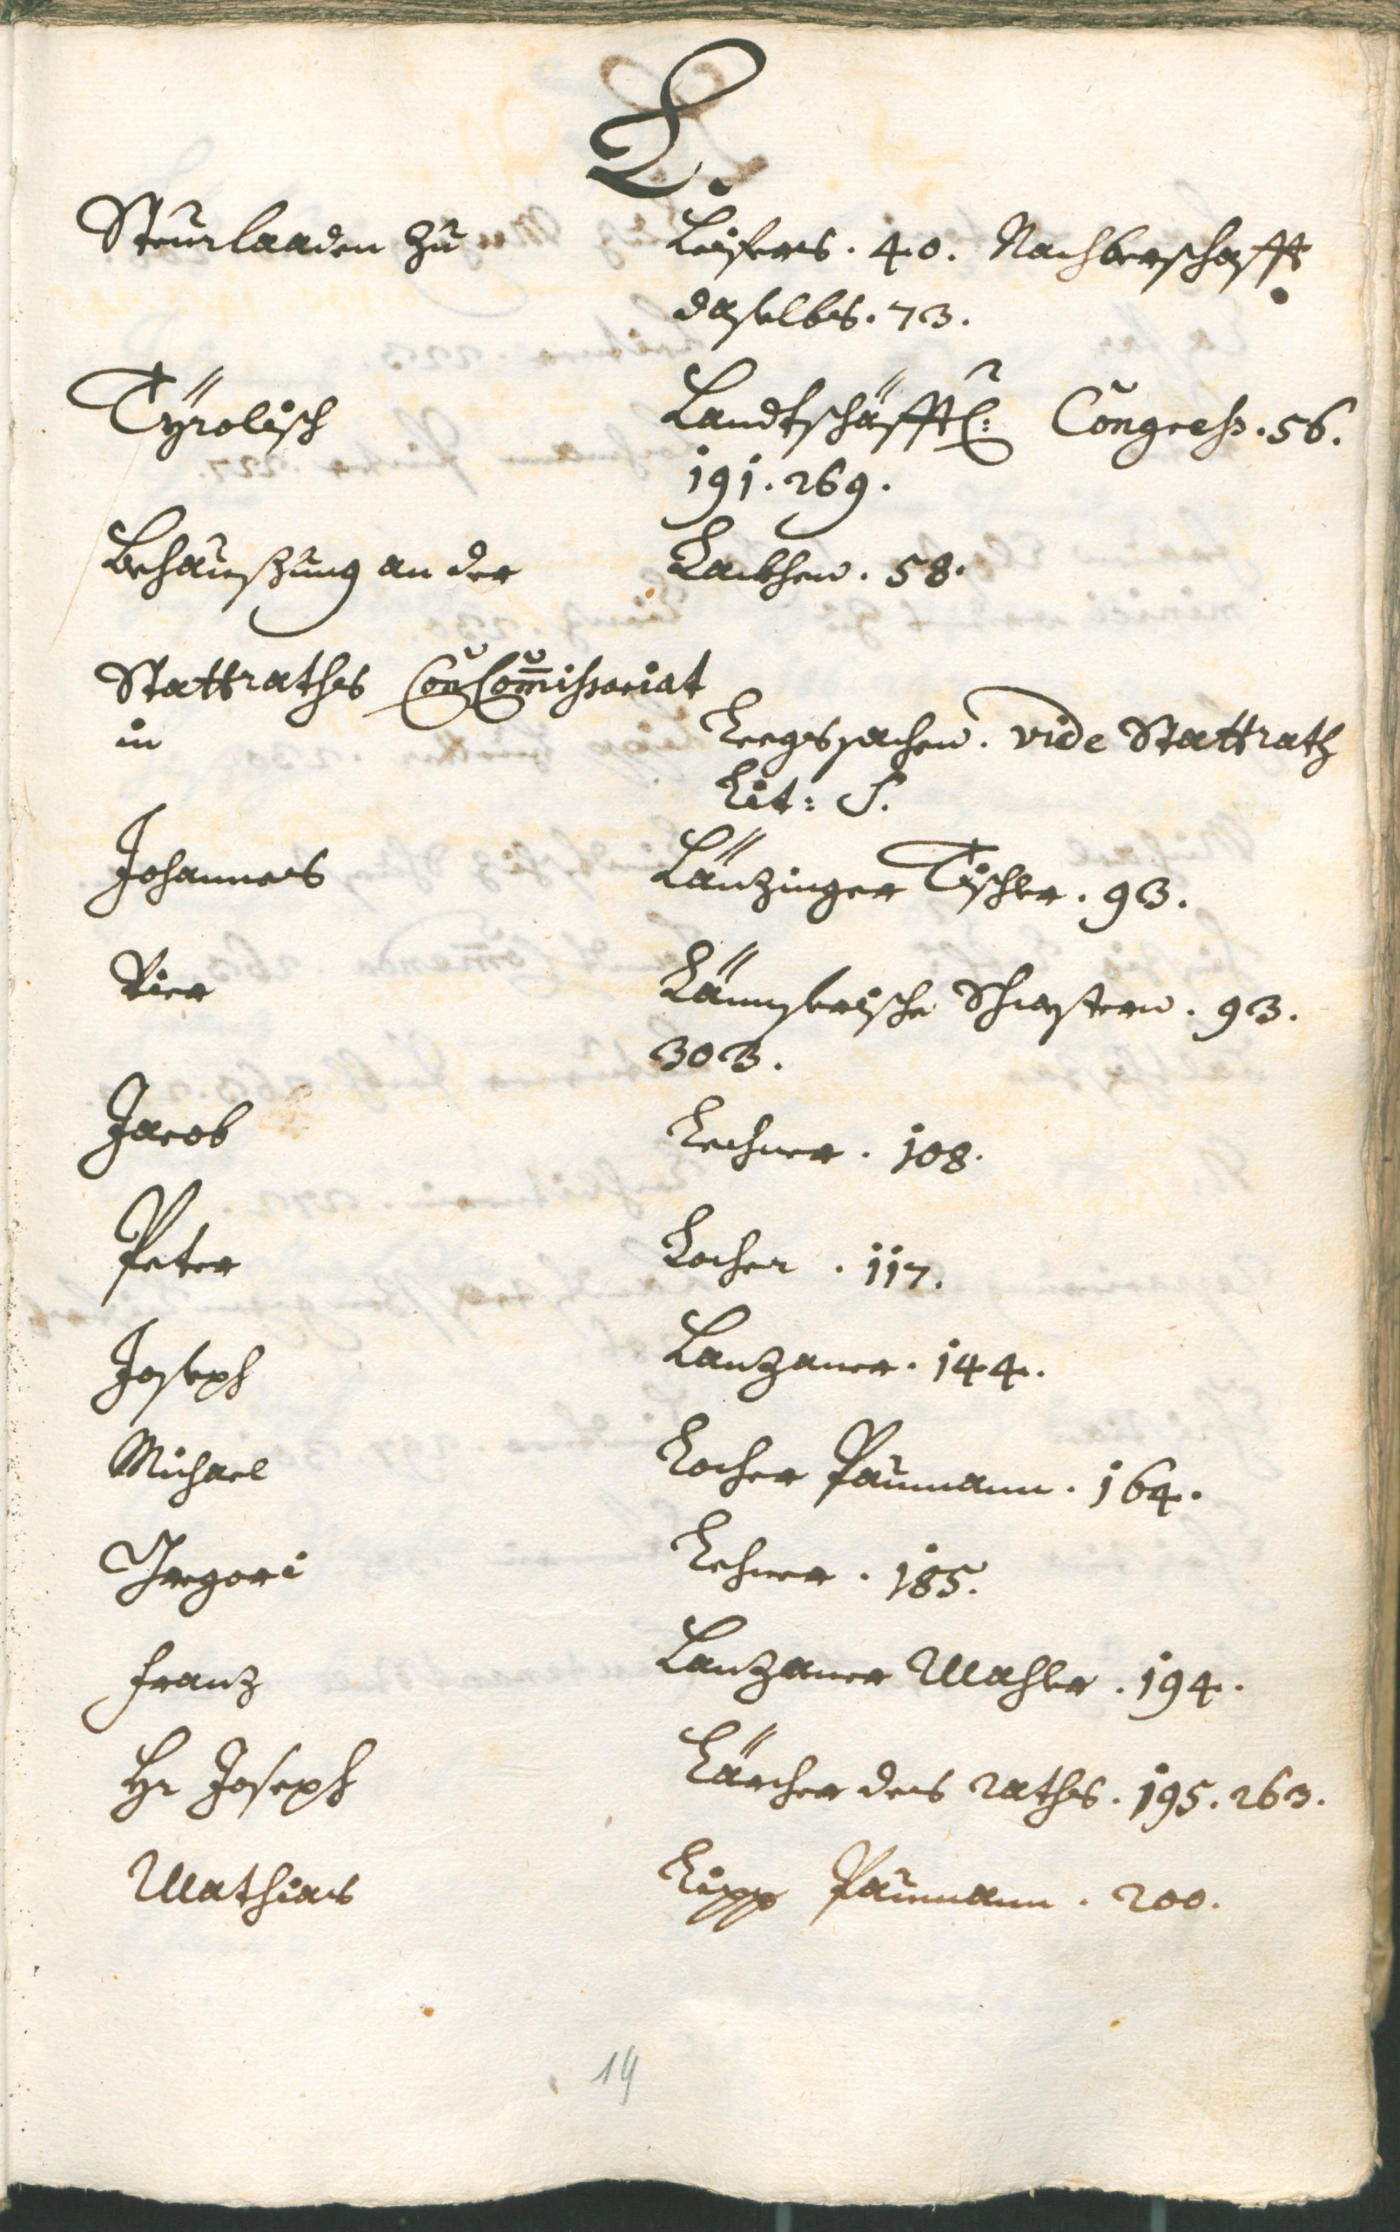 L.
Steurlaaden zu Leifers. 40. Nachberschafft
daselbs. 73.
Tÿrolisch Landtschäfftl: Congress. 56.
191. 269.
Behaußung an der Lackhen. 58.
Stattrathes Con Commissariat
in Kregssachen. vide Stattrath
Lit: S.
Johannes Länzinger Tischler. 93.
Vier Schwestern. 93.
303.
Jacob Lechner. 108.
Peter Locher. 117.
Joseph Lanzaner. 144.
Michael Locher Paumann. 164.
Gregori Lehner. 185.
Franz Lanzaner Mahler. 194.
Hr Joseph Lärcher des raths. 195. 263.
Mathias Lipp Paumann. 200.
14